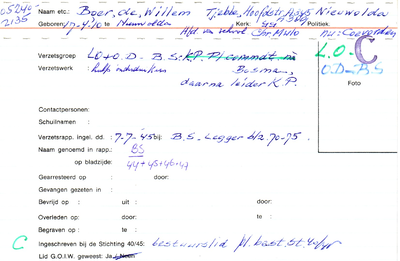 Naam etc.: Boer, de, Willem Tjebbe, Hoofdstr. Nieuwolda
Geboren: te Nieuwolda Kerk: Politiek:
Hfd. van school Chr. Mulo nu: Coevorden
Verzetsgroep LO + O.D. - B.S. - K.P. Pl. commdt. na L.O-C
Verzetswerk hulp onderduikers Bosman, O.D-B.S
daarna leider K.P.
Foto
Contactpersonen:
Schuilnamen :
Verzetsrapp. ingel. dd. : 7-7-45 bij: B.S.-Legger blz. 70-75.
Naam genoemd in rapp.: BS
op bladzijde: 44+45+46+47
Gearresteerd op : door:
Gevangen gezeten in :
Bevrijd op : uit : door:
Overleden op: door: te :
Begraven op : te :
C Ingeschreven bij de Stichting 40/45: bestuurslid Pl. best. St. 40/45
Lid G.O.I.W. geweest: Ja / Neen